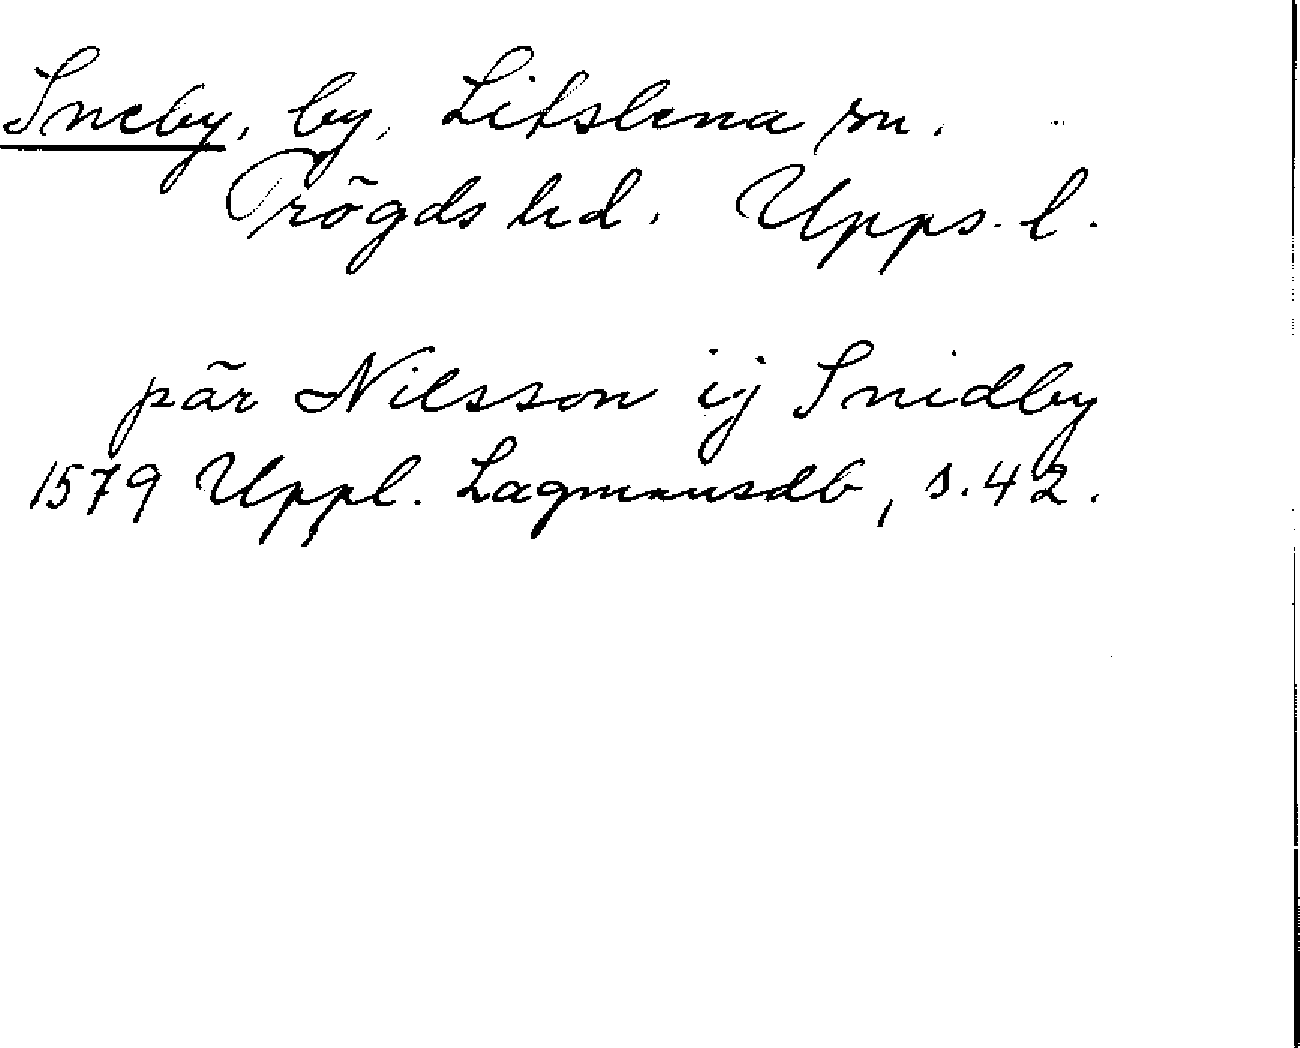 Sneby, by, Litslena sn.
Trögds hd. Upps. l.
pär Nilsson ij Snidby
1579 Uppl. Lagmansdb, s. 42.